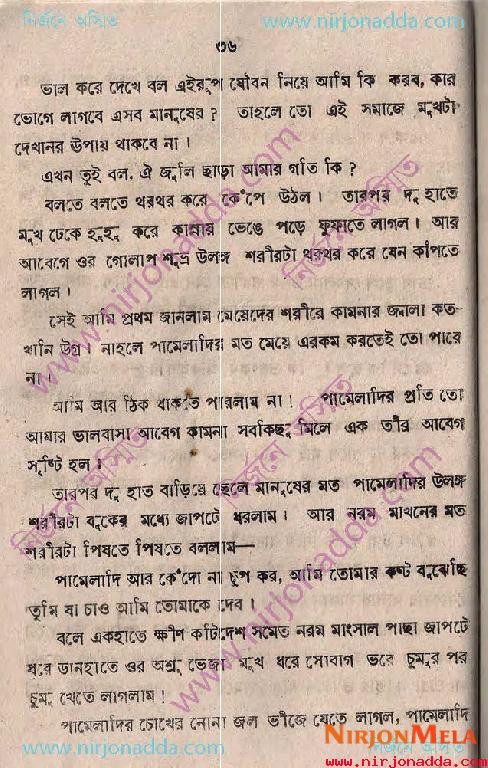 নির্জনে অস্মিত www.nirjonadda.com
৩৬
ভাল করে দেখে বল এইরূপ যৌবন নিয়ে আমি কি করব, কার
ভোগে লাগবে এসব মানুষের ? তাহলে তো এই সমাজে মুখটা
দেখানর উপায় থাকবে না ।
এখন তুই বল, ঐ জনলি ছাড়া আমার গতি কি ?
বলতে বলতে থরথর করে কে'পে উঠল । তারপর দু হাতে
মুখ ঢেকে হুহু করে কান্নায় ভেঙে পড়ে ফুফাতে লাগল । আর
আবেগে ওর গোলাপ শুভ্র উলঙ্গ শরীরটা থরথর করে যেন কাঁপতে
লাগল ।
সেই আমি প্রথম জানলাম মেয়েদের শরীরে কামনার জ্বালা কত-
খানি উগ্র । নাহলে পামেলাদির মত মেয়ে এরকম করতেই তো পারে
না ।
আমি আর ঠিক থাকতে পারলাম না ! পামেলাদির প্রতি তো
আমার ভালবাসা আবেগ কামনা সবকিছু মিলে এক তীর আবেগ
সৃষ্টি হল ।
তারপর দু হাত বাড়িয়ে ছেলে মানুষের মত পামেলাদির উলঙ্গ
শরীরটা বুকের মধ্যে জাপটে ধরলাম । আর নরম মাখনের মত
শরীরটা পিষতে পিষতে বললাম—
পামেলাদি আর কে'দো না চুপ কর, আমি তোমার কষ্ট বুঝেছি
তুমি যা চাও আমি তোমাকে দেব ।
বলে একহাতে ক্ষীণ কটিদেশ সমেত নরম মাংসাল পাছা জাপটে
ধরে ডানহাতে ওর অশ্রু ভেজা মুখ ধরে সোহাগ ভরে চুমুর পর
চুমু খেতে লাগলাম !
পামেলাদির চোখের নোনা জল ভীজে যেতে লাগল, পামেলাদি
www.nirjonadda.com নির্জনে অস্মিত
NIRJONMELA
www.nirjonadda.com